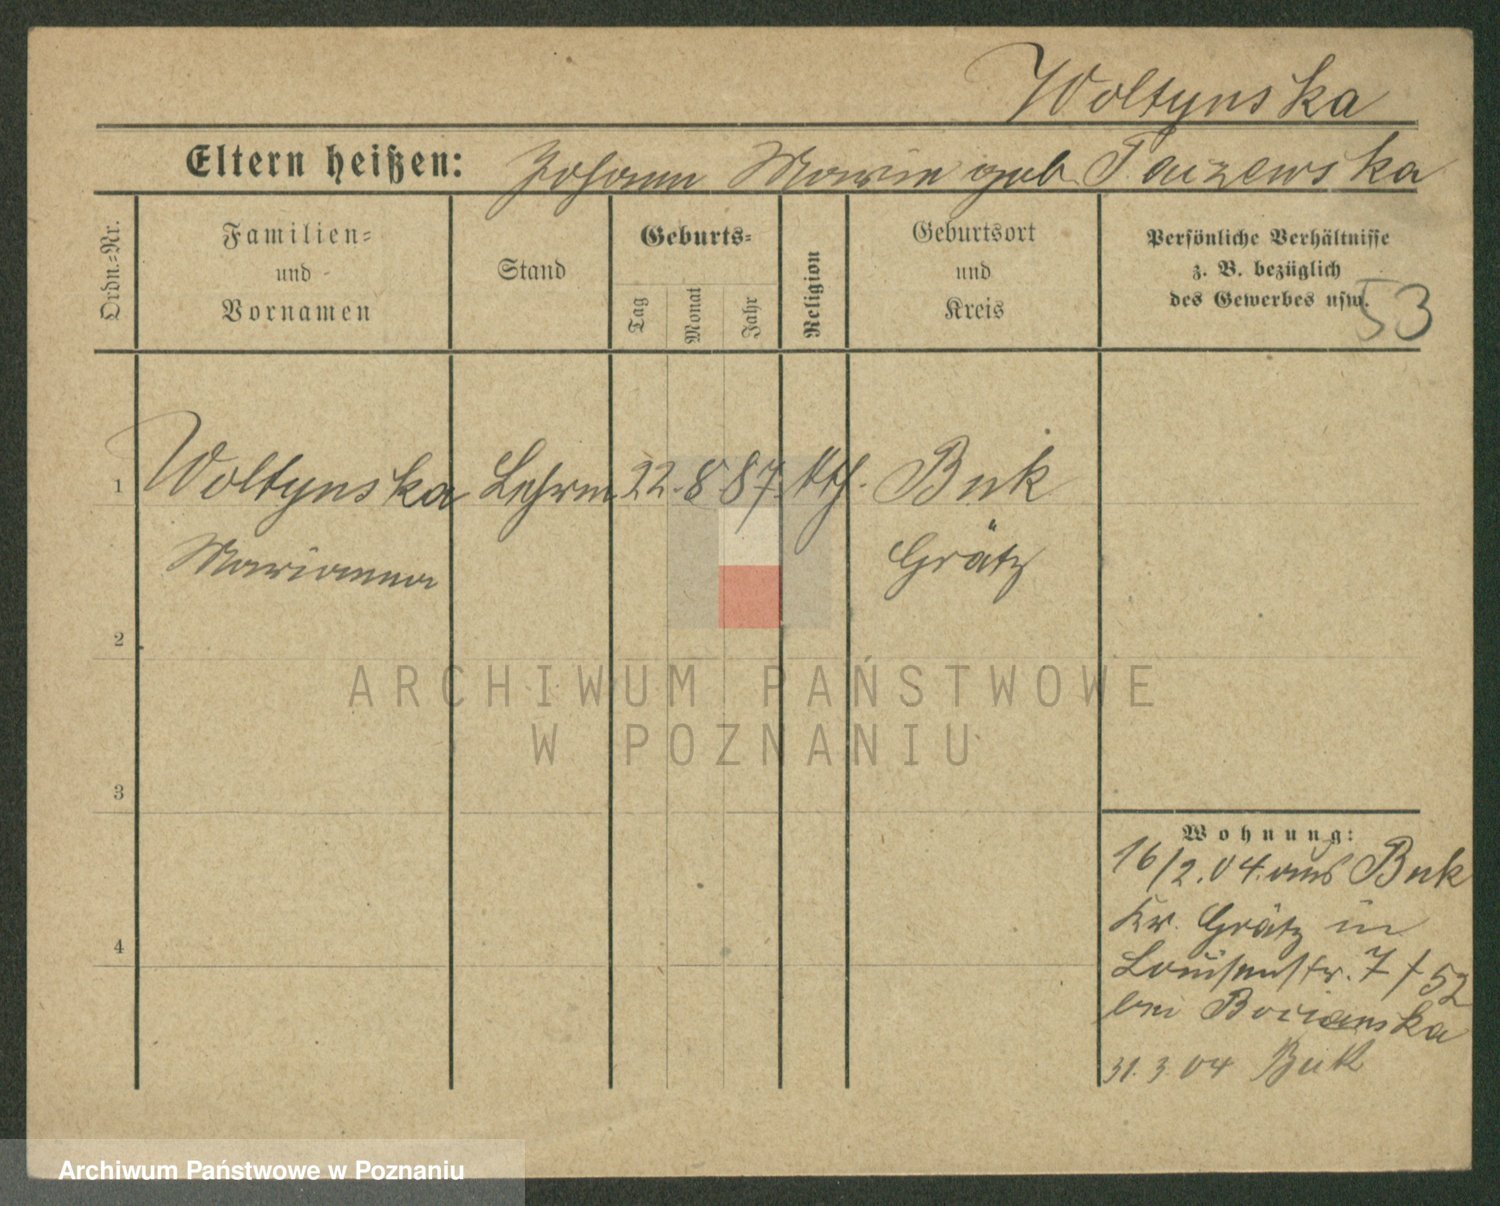 Woltynska
Eltern heißen: Johann Marie geb.
Ordn.-Nr.
Familien-
und
Vornamen
Stand
Geburts-
Tag
Monat
Jahr
Religion
Geburtsort
und
Kreis
Persönliche Verhältnisse
z. B. bezüglich
des Gewerbes usw.
53
1 Woltynska Lehrm. 22. 8 87. kth. Buk
Marianna Grätz
2
3
4
ARCHIWUM PAŃSTWOWE
W POZNANIU
Wohnung:
16/2.04. aus Buk
Kr. Grätz in
Louisenstr. 7 / 52
bei
31.3.04 Buk
Archiwum Państwowe w Poznaniu